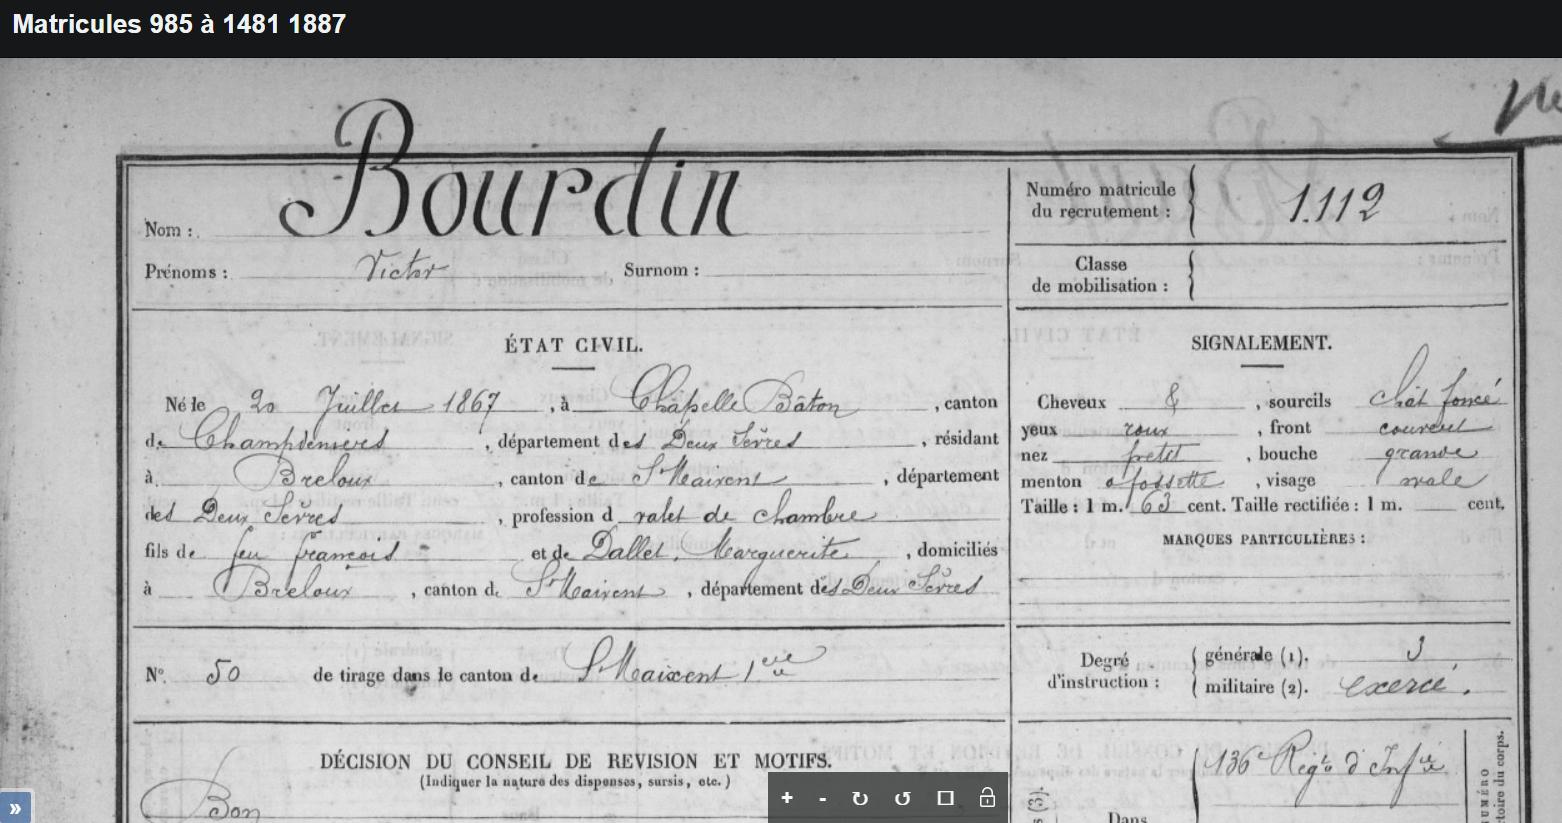 Matricules 985 à 1481 1887
Bourdin
Nom :
Prénoms : Victor Surnom :
Numéro matricule du recrutement : 1.112
Classe de mobilisation :
ÉTAT CIVIL.
Né le 20 Juillet 1867, à Chapelle Bâton, canton
de Champdeniers, département des Deux Sèvres, résidant
à Breloux, canton de St Maixent, département
des Deux Sèvres, profession d valet de chambre
fils de feu françois et de Dallet, Marguerite, domiciliés
à Breloux, canton de St Maixent, département des Deux Sèvres
SIGNALEMENT.
Cheveux &, sourcils chât foncé
yeux roux, front couvert
nez petit, bouche grande
menton a fossette, visage ovale
Taille : 1 m. 63 cent. Taille rectifiée : 1 m. cent.
MARQUES PARTICULIÈRES :
N° 50 de tirage dans le canton de St Maixent 1ère
Degré d'instruction : générale (1). 3
militaire (2). exercé.
DÉCISION DU CONSEIL DE REVISION ET MOTIFS.
(Indiquer la nature des dispenses, sursis, etc.)
Bon
136e Regt d'Infie
Dans
s (3).
NUMÉRO
toire du corps.